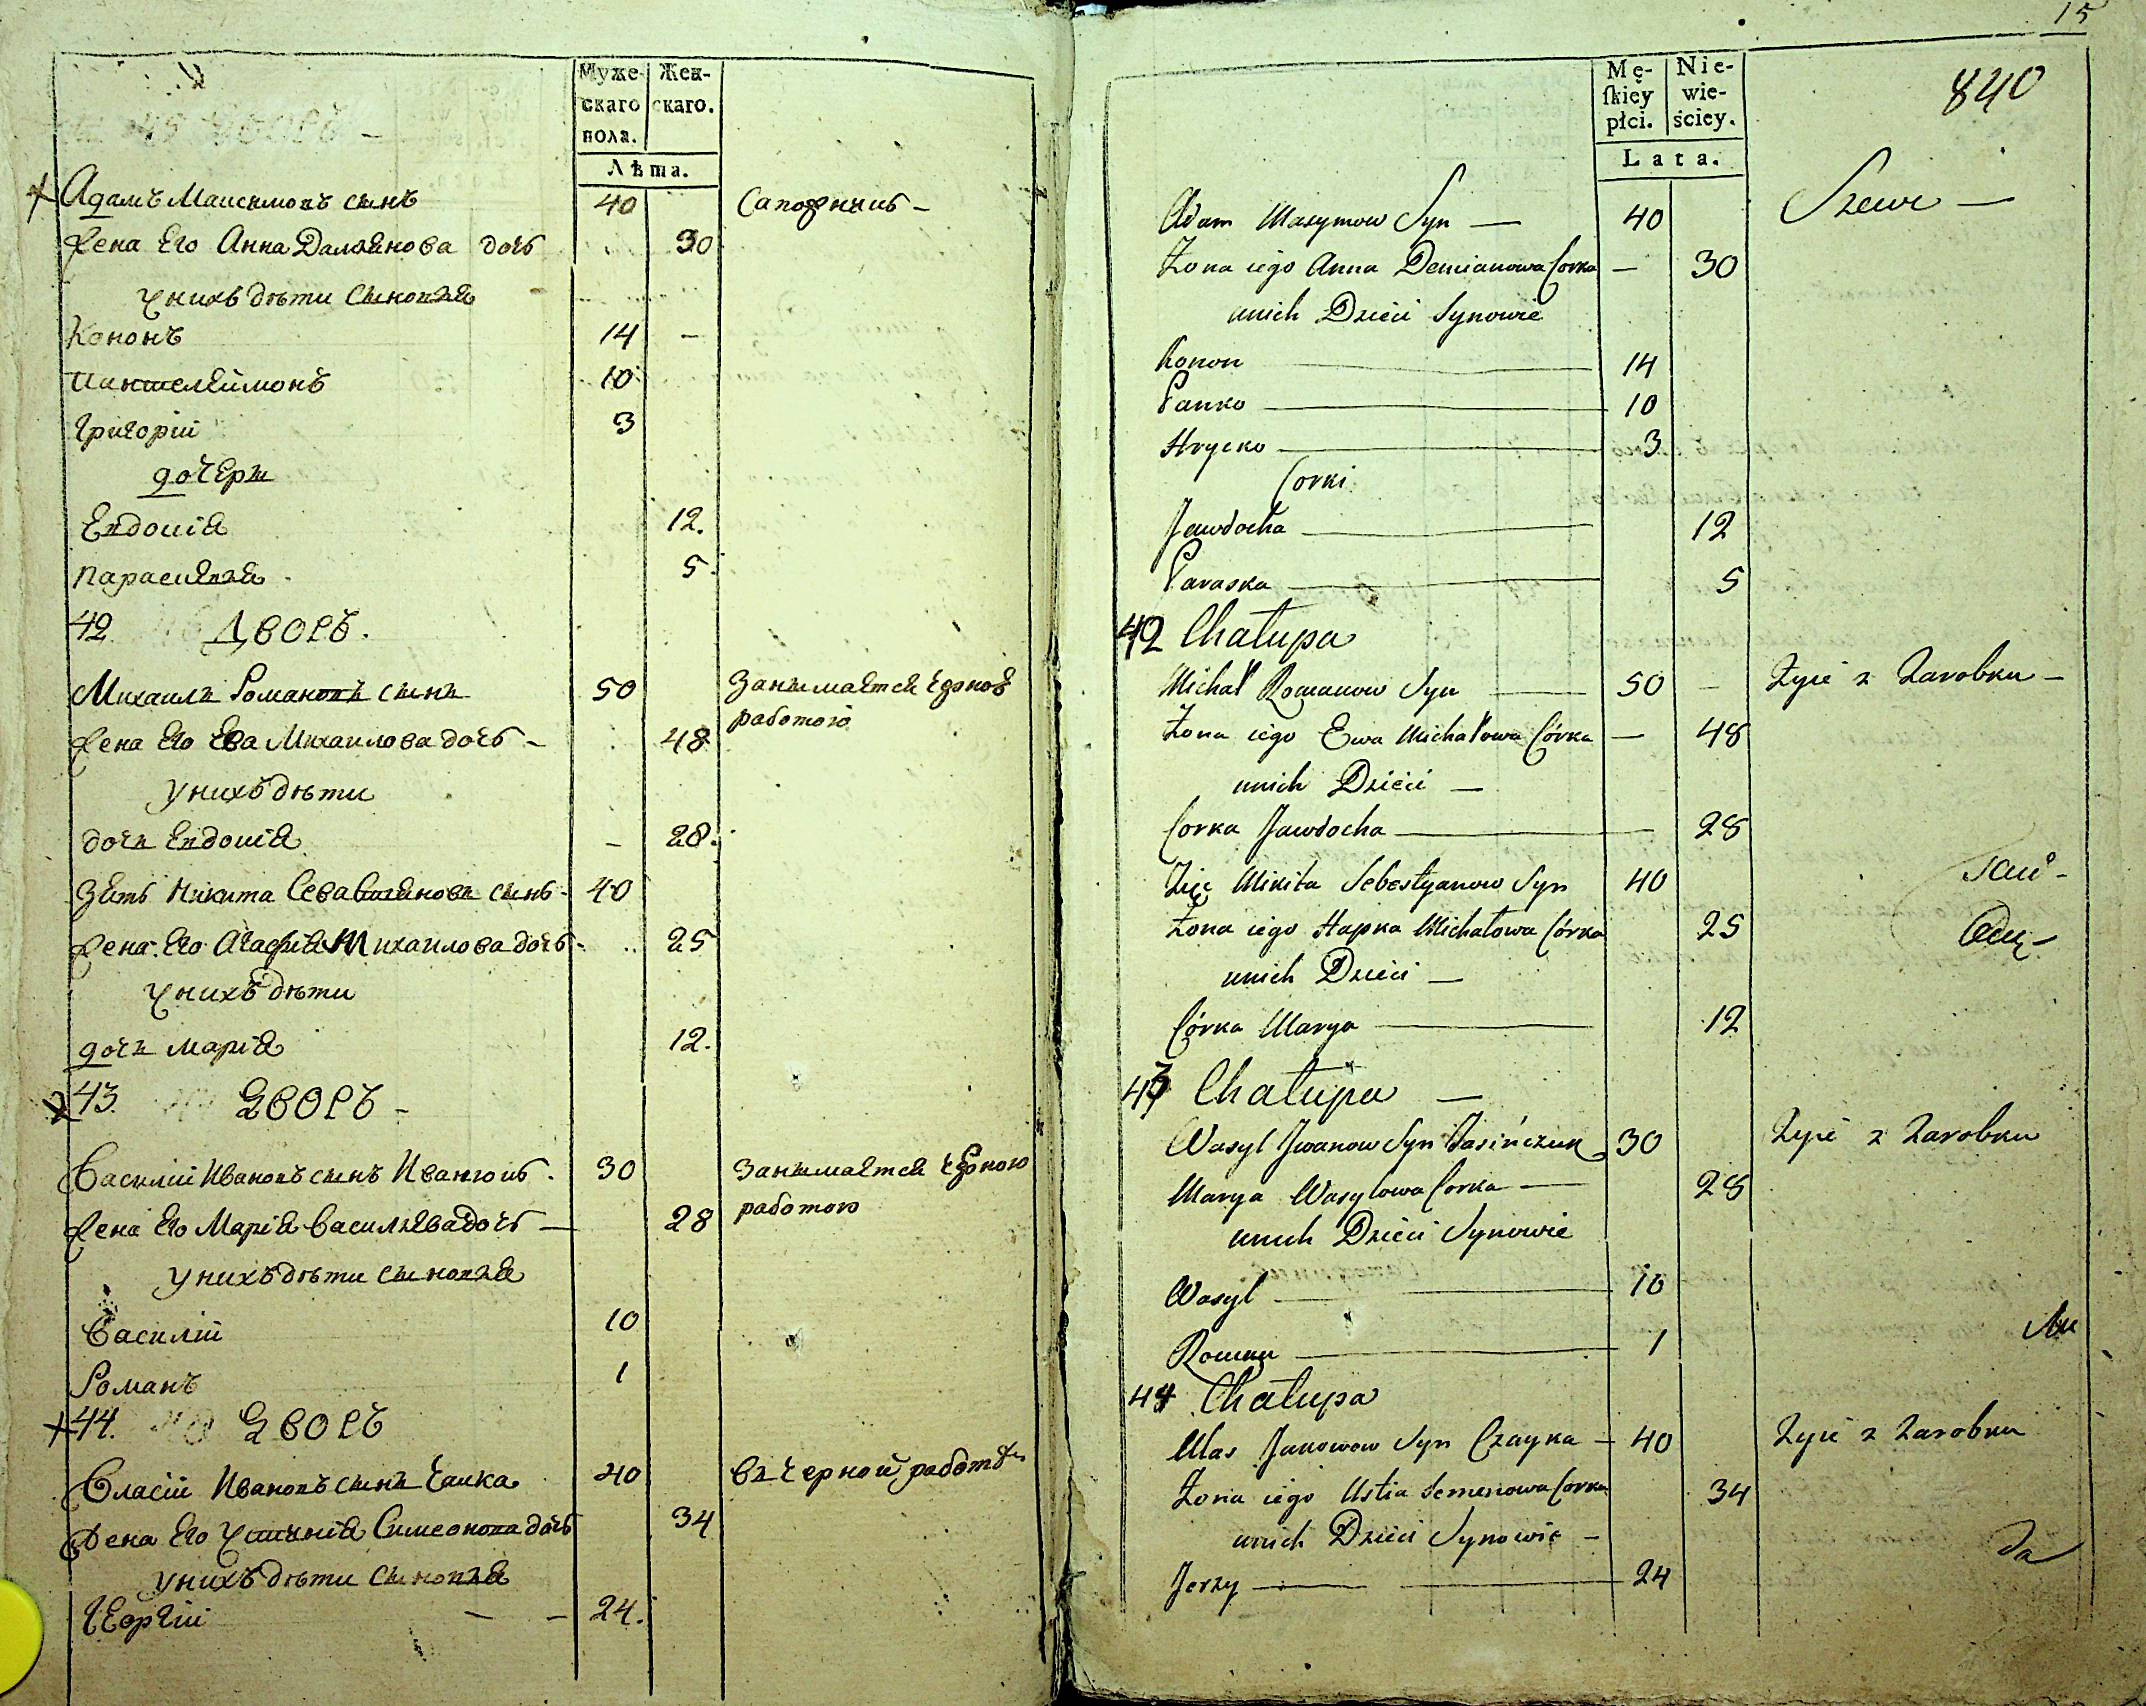 Муже-
скаго
пола.
Жен-
скаго.
Лѣта.
Адамъ Максимовъ сынъ 40 Сапожникъ -
Жена Его Анна Дамьянова дочь 30
у нихъ дѣти сыновья
Кононъ 14 -
Пантелеймонъ 10
Григорій 3
дочери
Евдокія 12.
Параскевья 5.
42. Дворъ.
Михаилъ Романовъ сынъ 50 Занимается чорной
работою
Жена Его Ева Михаилова дочь - 48
у нихъ дѣти
дочь Евдокія - 28.
Зять Никита Севастьяновъ сынъ - 40
Жена Его Агафія Михаилова дочь - 25
у нихъ дѣти
дочь Марія 12.
43. Дворъ -
Василій Ивановъ сынъ 30 Занимается чорною
работою
Жена Его Марія Васильева дочь - 28
у нихъ дѣти сыновья
Василій 10
Романъ 1
44. Дворъ
Власій Ивановъ сынъ Чайка 40 въ черной работѣ
Жена Его Устинія Симеонова дочь 34
у нихъ дѣти сыновья
Георгій - - 24.
15
840
Mę-
ſkiey
płci.
Nie-
wie-
ściey.
Lata.
Adam Maxymow Syn — 40 Szewc —
Żona iego Anna Demianowa Corka — 30
unich Dzieci Synowie
Konon 14
Panko 10
Hrycko 3
Corki
Jawdocha 12
Paraska 5
42 Chałupa
Michał Romanow Syn — 50 — Żyie z Zarobku —
Żona iego Ewa Michałowa Córka — 48
unich Dzieci —
Corka Jawdocha 28
Zięć Mikita Sebestyanow Syn 40
Żona iego Hapka Michałowa Córka 25
unich Dzieci —
Córka Marya 12
43 Chałupa —
Wasyl Jwanow Syn Jasińczuk 30 Żyie z Zarobku
Marya Wasylowa Corka — 28
unich Dzieci Synowie
Wasyl 10
Roman 1
44 Chałupa
Ułas Jakowow Syn Czayka — 40 Żyie z Zarobku
Żona iego Ustia Semenowa Corka 34
unich Dzieci Synowie —
Jerzy 24
Da